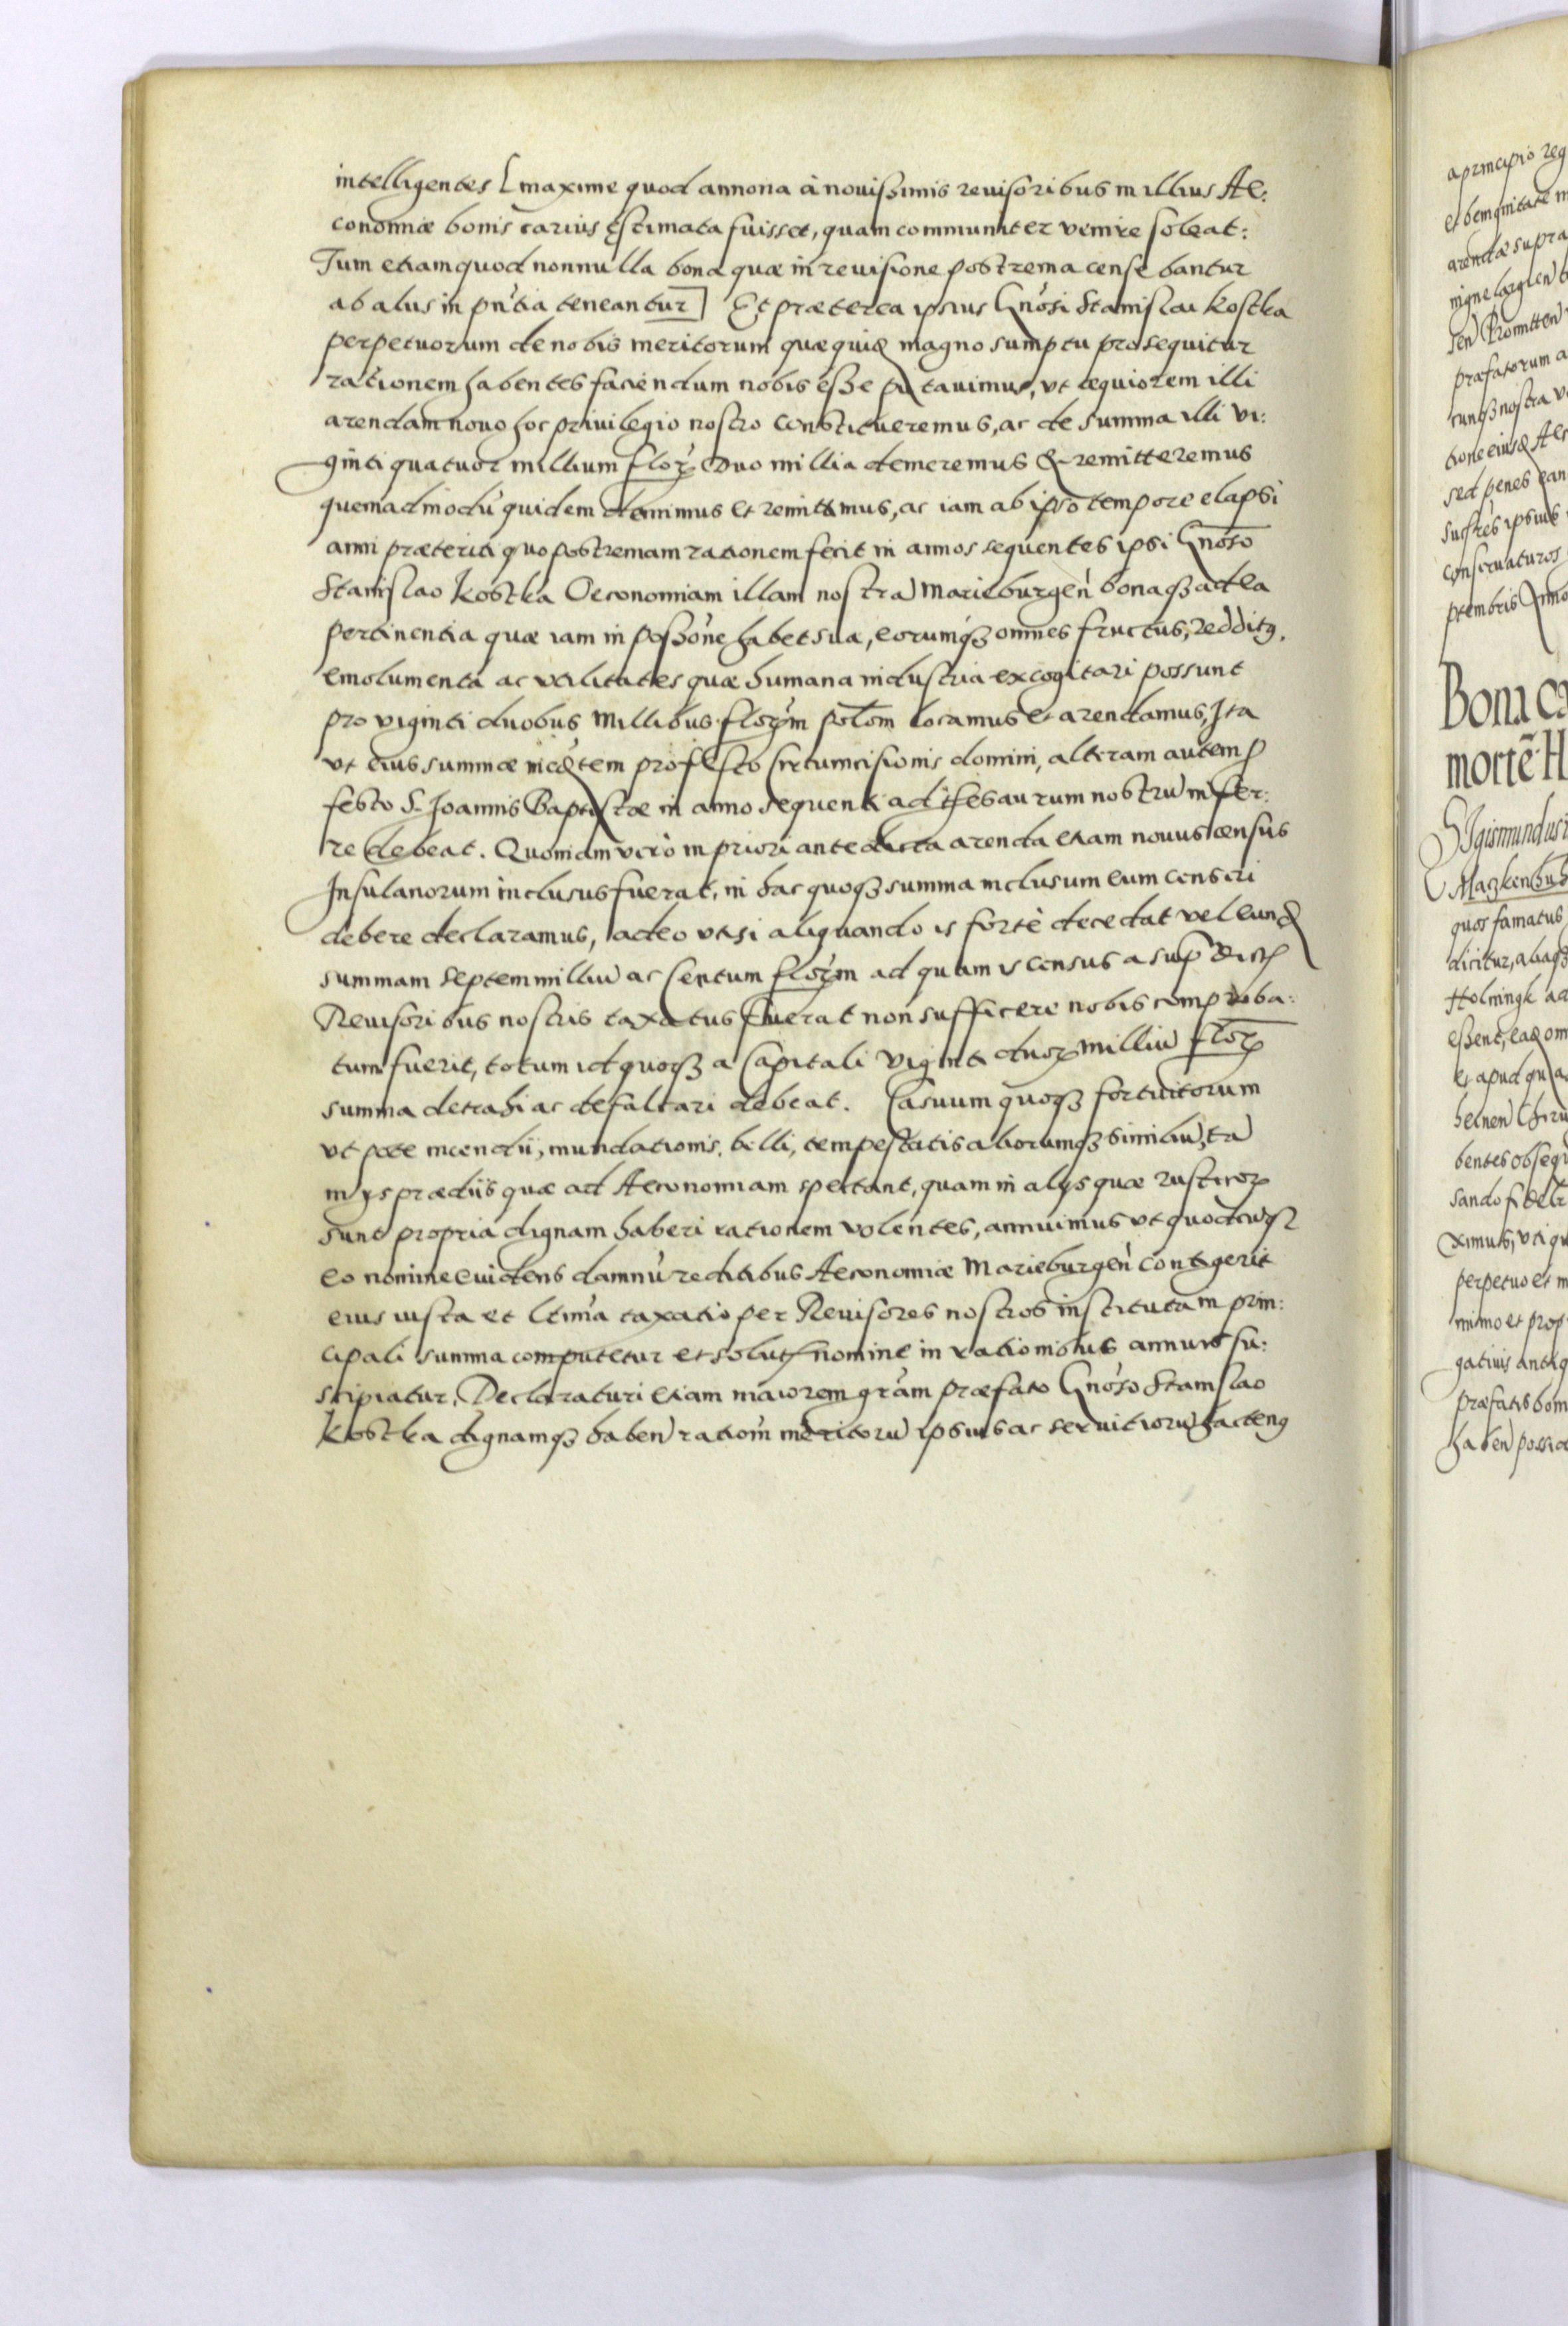 intelligentes [maxime quod annona à nouissimis reuisoribus in illius Ae:
conomiæ bonis carius ęstimata fuisset, quam communiter venire soleat:
Tum etiam quod nonnulla bona quæ in reuisione postrema censebantur
ab alijs in pn̄tia teneantur] Et præterea ipsius Gnōsi Stanislai Kostka
perpetuorum de nobis meritorum quæ quidē magno sumptu prosequitur
rationem habentes faciendum nobis esse putauimus, vt æquiorem illi
arendam nouo hoc priuilegio nostro constitueremus, ac de summa illi vi:
ginti quatuor millium floꝝ Duo millia demeremus & remitteremus
quemadmodū quidem demimus et remittimus, ac iam ab ipso tempore elapsi
anni præteriti quo postremam rationem fecit in annos sequentes ipsi Gnōso
Stanislao Kostka Oeconomiam illam nostrā Marieburgeñ bonaqꝫ ad ea
pertinentia quæ iam in possōne habet sua, eorumqꝫ omnes fructus, redditꝰ,
emolumenta ac vtilitates quæ humana industria excogitari possunt
pro viginti duobus Millibus floꝝm polōm locamus et arendamus, Ita
vt eius summæ medtem pro festo Circumcisionis domini, alteram autem p
festo S. Joannis Baptistæ in anno sequenti ad thesaurum nostrū infer:
re debeat. Quoniam verò in priori antedicta arenda etiam nouus census
Insulanorum inclusus fuerat, in hac quoqꝫ summa inclusum eum censeri
debere declaramus, adeo vt si aliquando is fortè decedat vel eund
summam septem milliū ac Centum floꝝm ad quam is census a sup dict
Reuisoribus nostris taxatus fuerat non sufficere nobis comproba:
tum fuerit, totum id quoqꝫ a Capitali viginti duoꝝ milliū floꝝ
summa detrahi ac defalcari debeat. Casuum quoqꝫ fortuitorum
vt pote incendij, inundationis, belli, tempestatis aliorumqꝫ similiū, tā
in ijs prædijs quæ ad Aeconomiam spectant, quam in alijs quæ rusticoꝝ
sunt propria dignam haberi rationem volentes, annuimus vt quodcūqꝫ
eo nomine euidens damnū reditibus Aeconomiæ Marieburgeñ contigerit
eius iusta et ltima taxatio per Reuisores nostros instituta in prin:
cipali summa computetur et solut nomine in rationibus annuis su:
scipiatur. Declaraturi etiam maiorem grām præfato Gnōso Stanislao
Kostka dignamqꝫ habeñ ratiom̄ meritorū ipsius ac seruitiorū hactenꝰ
a principio reg
et benignitate
arendæ supra
Promitteñ
præfatorum a
nostra
sed penes
ipsius
conseruaturos
Bona
mortē. H
Sigismundus
quos famatus
dicitur, ab
Holningk
et apud
bentes obseq
sando
perpetuo et
nimo et prop
gatiuis antiq
præfatis